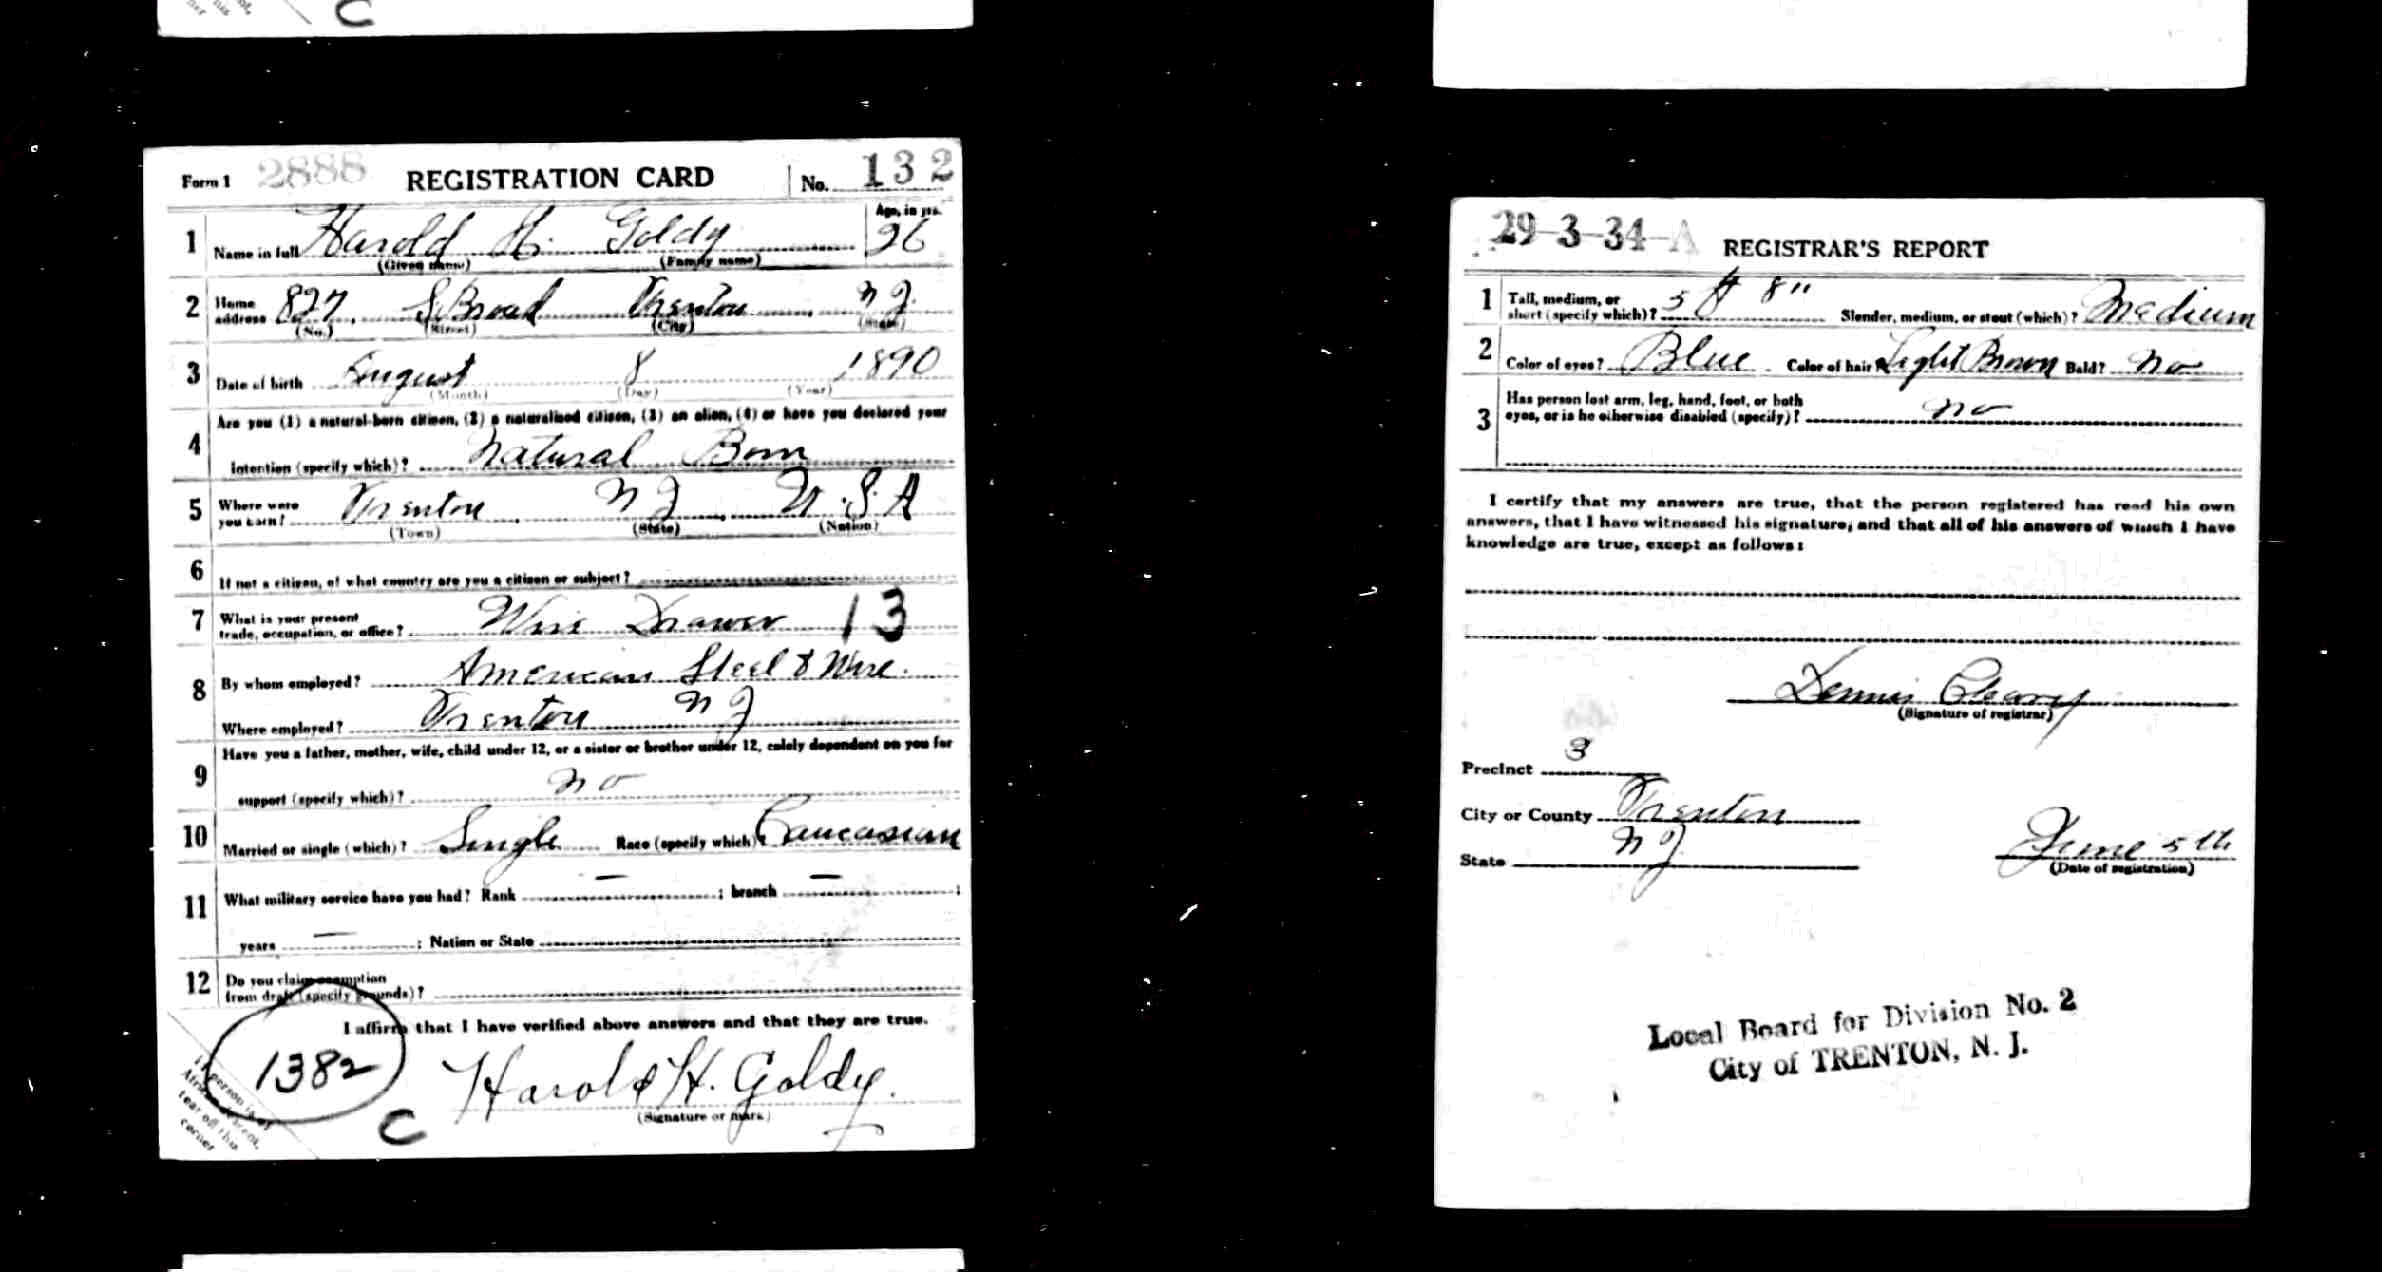 C
Form 1 2888 REGISTRATION CARD No. 132
1 Name in full Harold H. Goldy Age, in yrs. 26
(Given name) (Family name)
2 Home address 827 S. Broad Trenton N J.
(No.) (Street) (City) (State)
3 Date of birth August 8 1890
(Month) (Day) (Year)
4 Are you (1) a natural-born citizen, (2) a naturalized citizen, (3) an alien, (4) or have you declared your
intention (specify which)? Natural Born
5 Where were you born? Trenton N J U.S.A
(Town) (State) (Nation)
6 If not a citizen, of what country are you a citizen or subject?
7 What is your present trade, occupation, or office? Wire Drawer 13
8 By whom employed? American Steel & Wire.
Where employed? Trenton N J
9 Have you a father, mother, wife, child under 12, or a sister or brother under 12, solely dependent on you for
support (specify which)? no
10 Married or single (which)? Single Race (specify which)? Caucasian
11 What military service have you had? Rank — ; branch — ;
years — ; Nation or State
12 Do you claim exemption
from draft (specify grounds)?
I affirm that I have verified above answers and that they are true.
1382
C
Harold H. Goldy.
(Signature or mark)
If person is of
African descent,
tear off this
corner
29-3-34-A REGISTRAR'S REPORT
1 Tall, medium, or short (specify which)? 5 ft 8" Slender, medium, or stout (which)? Medium
2 Color of eyes? Blue Color of hair? Light Brown Bald? no
3 Has person lost arm, leg, hand, foot, or both
eyes, or is he otherwise disabled (specify)? no
I certify that my answers are true, that the person registered has read his own
answers, that I have witnessed his signature, and that all of his answers of which I have
knowledge are true, except as follows:
Dennis Cleary
(Signature of registrar)
Precinct 3
City or County Trenton
State N J.
June 5th
(Date of registration)
Local Board for Division No. 2
City of TRENTON, N. J.